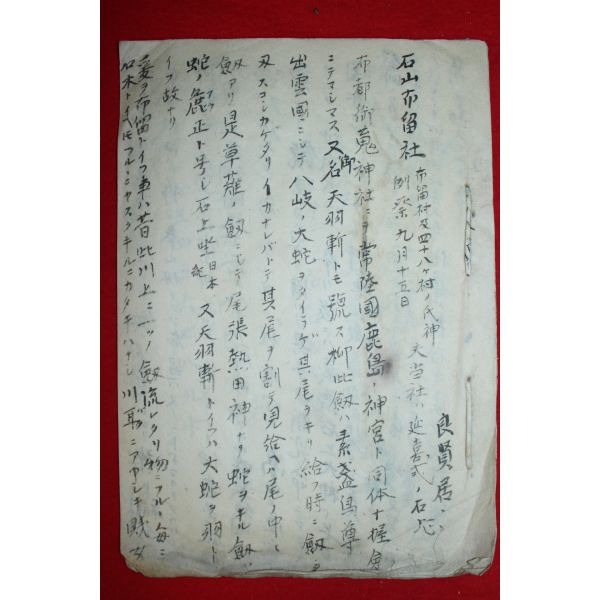 良賢居
石山布留社 布留村及四十八ヶ村ノ氏神
例祭九月十五日 又当社ハ延喜式ノ石
布都御魂神社ニテ常陸國鹿島ノ神宮ト同体十握劔
ニテマシマス又御名天羽斬トモ號ス抑此劔ハ素盞烏尊
出雲國ニシテ八岐ノ大蛇ヲタイラゲ其尾ヲキリ給フ時ニ劔ノ
刄スコシカケタリイカナレバトテ其尾ヲ割テ見給ヘハ尾ノ中ニ
劔アリ是草薙ノ劔ニシテ尾張熱田神ナリ蛇ヲキル劔
蛇ノ麁正ト号シ石上坐日本紀 又天羽斬トイフハ大蛇ヲ羽ト
イフ故ナリ
爰ヲ布留トイフ事ハ昔此川上ニ一ツノ劔流レクリ物ニフルヽ毎ニ
石木トイヘ𪜈フルヽニカタキハナシ川